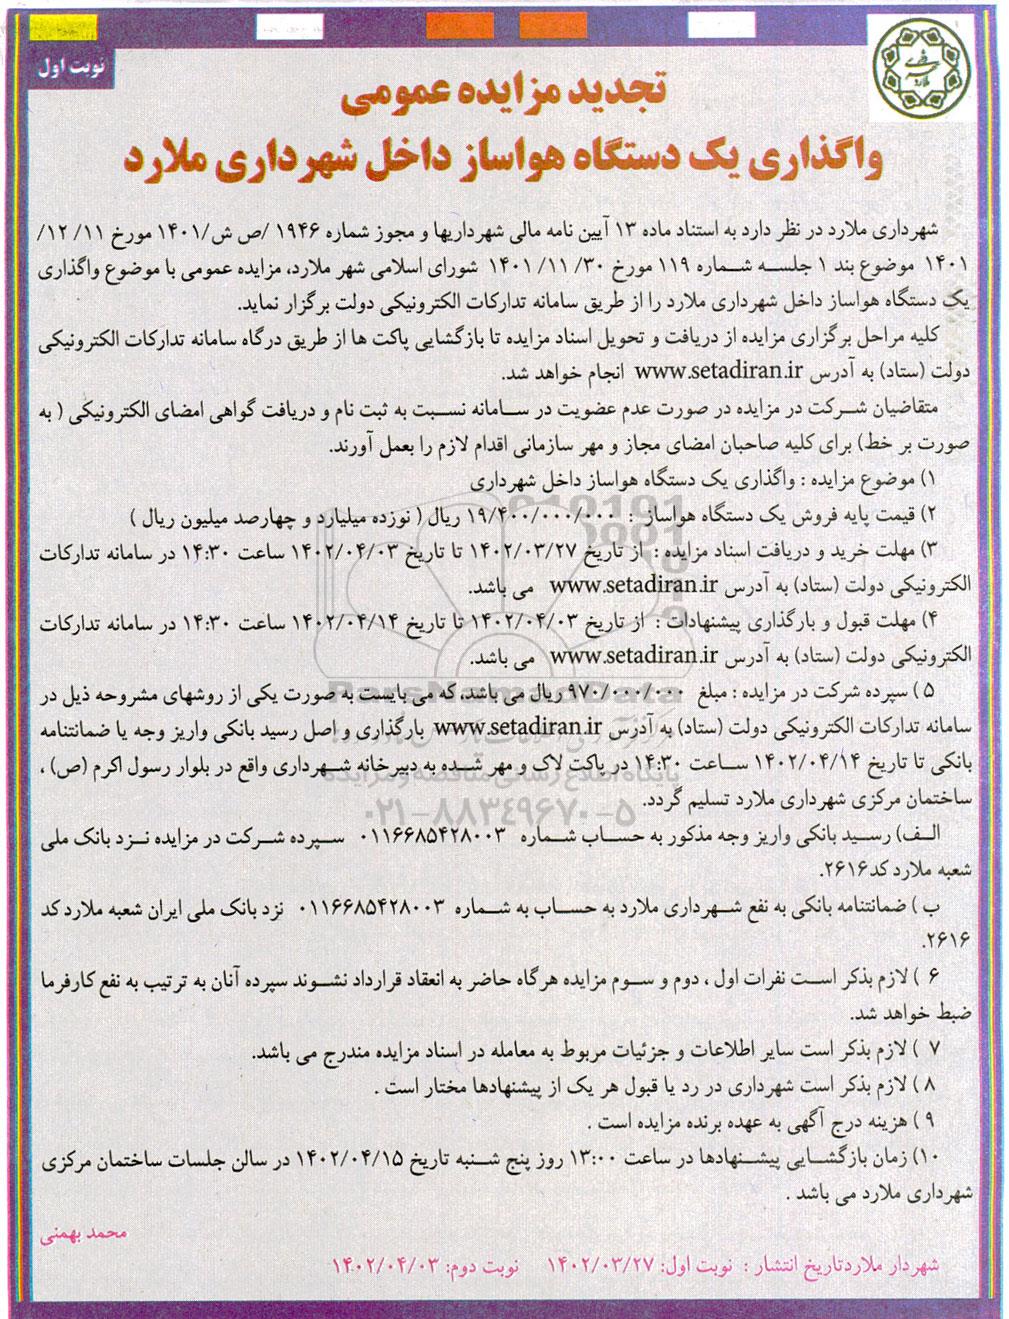 نوبت اول
شهرداری ملارد
تجدید مزایده عمومی
واگذاری یک دستگاه هواساز داخل شهرداری ملارد
شهرداری ملارد در نظر دارد به استناد ماده ۱۳ آیین نامه مالی شهرداریها و مجوز شماره ۱۹۴۶ /ص ش/۱۴۰۱ مورخ ۱۱/ ۱۲/
۱۴۰۱ موضوع بند ۱ جلسه شماره ۱۱۹ مورخ ۳۰/ ۱۱/ ۱۴۰۱ شورای اسلامی شهر ملارد، مزایده عمومی با موضوع واگذاری
یک دستگاه هواساز داخل شهرداری ملارد را از طریق سامانه تدارکات الکترونیکی دولت برگزار نماید.
کلیه مراحل برگزاری مزایده از دریافت و تحویل اسناد مزایده تا بازگشایی پاکت ها از طریق درگاه سامانه تدارکات الکترونیکی
دولت (ستاد) به آدرس www.setadiran.ir انجام خواهد شد.
متقاضیان شرکت در مزایده در صورت عدم عضویت در سامانه نسبت به ثبت نام و دریافت گواهی امضای الکترونیکی ( به
صورت بر خط) برای کلیه صاحبان امضای مجاز و مهر سازمانی اقدام لازم را بعمل آورند.
۱) موضوع مزایده : واگذاری یک دستگاه هواساز داخل شهرداری
۲) قیمت پایه فروش یک دستگاه هواساز : ۱۹/۴۰۰/۰۰۰/۰۰۰ ریال ( نوزده میلیارد و چهارصد میلیون ریال )
۳) مهلت خرید و دریافت اسناد مزایده : از تاریخ ۱۴۰۲/۰۳/۲۷ تا تاریخ ۱۴۰۲/۰۴/۰۳ ساعت ۱۴:۳۰ در سامانه تدارکات
الکترونیکی دولت (ستاد) به آدرس www.setadiran.ir می باشد.
۴) مهلت قبول و بارگذاری پیشنهادات : از تاریخ ۱۴۰۲/۰۴/۰۳ تا تاریخ ۱۴۰۲/۰۴/۱۴ ساعت ۱۴:۳۰ در سامانه تدارکات
الکترونیکی دولت (ستاد) به آدرس www.setadiran.ir می باشد.
۵ ) سپرده شرکت در مزایده : مبلغ ۹۷۰/۰۰۰/۰۰۰ ریال می باشد، که می بایست به صورت یکی از روشهای مشروحه ذیل در
سامانه تدارکات الکترونیکی دولت (ستاد) به آدرس www.setadiran.ir بارگذاری و اصل رسید بانکی واریز وجه یا ضمانتنامه
بانکی تا تاریخ ۱۴۰۲/۰۴/۱۴ ساعت ۱۴:۳۰ در پاکت لاک و مهر شده به دبیرخانه شهرداری واقع در بلوار رسول اکرم (ص) ،
ساختمان مرکزی شهرداری ملارد تسلیم گردد.
الف) رسید بانکی واریز وجه مذکور به حساب شماره ۰۱۱۶۶۸۵۴۲۸۰۰۳ سپرده شرکت در مزایده نزد بانک ملی
شعبه ملارد کد۲۶۱۶.
ب ) ضمانتنامه بانکی به نفع شهرداری ملارد به حساب به شماره ۰۱۱۶۶۸۵۴۲۸۰۰۳ نزد بانک ملی ایران شعبه ملارد کد
۲۶۱۶.
۶ ) لازم بذکر است نفرات اول ، دوم و سوم مزایده هرگاه حاضر به انعقاد قرارداد نشوند سپرده آنان به ترتیب به نفع کارفرما
ضبط خواهد شد.
۷ ) لازم بذکر است سایر اطلاعات و جزئیات مربوط به معامله در اسناد مزایده مندرج می باشد.
۸ ) لازم بذکر است شهرداری در رد یا قبول هر یک از پیشنهادها مختار است .
۹ ) هزینه درج آگهی به عهده برنده مزایده است .
۱۰) زمان بازگشایی پیشنهادها در ساعت ۱۳:۰۰ روز پنج شنبه تاریخ ۱۴۰۲/۰۴/۱۵ در سالن جلسات ساختمان مرکزی
شهرداری ملارد می باشد .
محمد بهمنی
شهردار ملاردتاریخ انتشار : نوبت اول: ۱۴۰۲/۰۳/۲۷ نوبت دوم: ۱۴۰۲/۰۴/۰۳
ParsNamadData
پایگاه اطلاع رسانی مناقصه و مزایده
۰۲۱-۸۸۳۴۹۶۷۰-۵